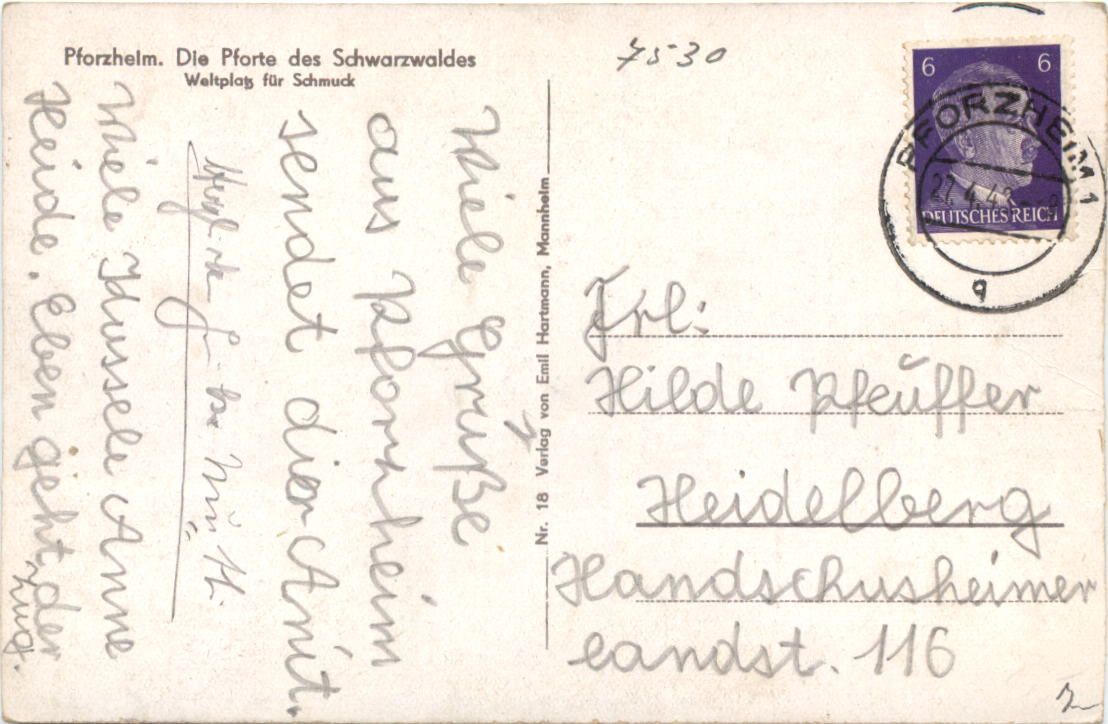 Pforzheim. Die Pforte des Schwarzwaldes
Weltplatz für Schmuck
7530
6 6
DEUTSCHES REICH
PFORZHEIM 1
27.4.43
q
Nr. 18 Verlag von Emil Hartmann, Mannheim
Viele Grüße
aus Pforzheim
sendet dir Anit.
Viele Kussele Anne
Heide. Eben geht der
Zug.
Frl:
Hilde Pfeuffer
Heidelberg
Handschusheimer
landst. 116